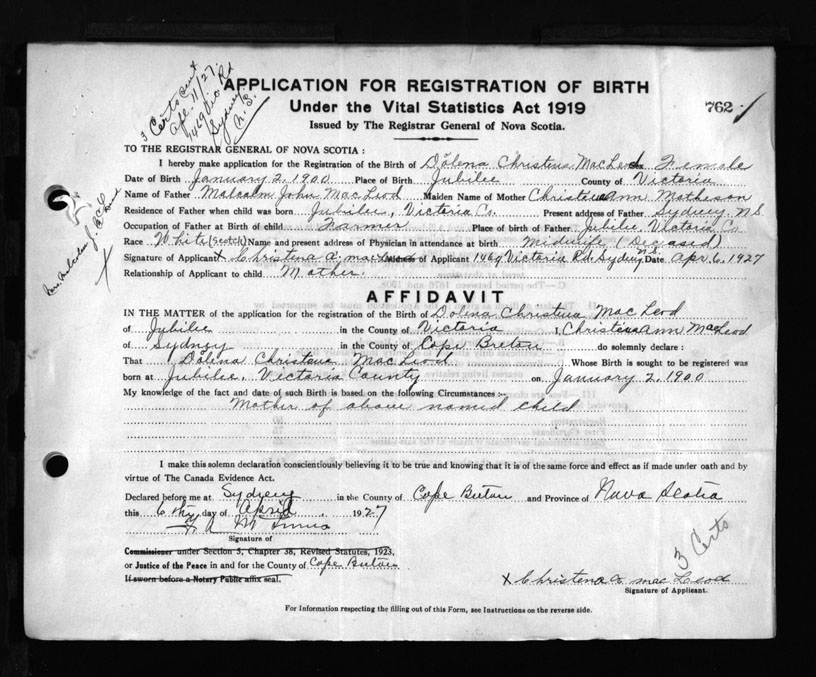 3 Certs sent
Apl 11/27
1469 Vic Rd
Sydney
N.S.
APPLICATION FOR REGISTRATION OF BIRTH
Under the Vital Statistics Act 1919
Issued by The Registrar General of Nova Scotia.
762
TO THE REGISTRAR GENERAL OF NOVA SCOTIA :
I hereby make application for the Registration of the Birth of Dolena Christena MacLeod Sex Female
Date of Birth January 2, 1900 Place of Birth Jubilee County of Victoria
Name of Father Malcolm John MacLeod Maiden Name of Mother Christena Ann Matheson
Residence of Father when child was born Jubilee, Victoria Co. Present address of Father Sydney N.S.
Occupation of Father at Birth of child Farmer Place of birth of Father Jubilee, Victoria Co
Race White (Scotch) Name and present address of Physician in attendance at birth Midwife (Deceased)
Signature of Applicant x Christena A. MacLeod of Applicant 1469 Victoria Rd. Sydney N.S. Date Apr. 6, 1927
Relationship of Applicant to child Mother.
Malcolm J.
AFFIDAVIT
IN THE MATTER of the application for the registration of the Birth of Dolena Christena MacLeod
of Jubilee in the County of Victoria I, Christena Ann MacLeod
of Sydney in the County of Cape Breton do solemnly declare :
That Dolena Christena MacLeod Whose Birth is sought to be registered was
born at Jubilee, Victoria County on January 2, 1900
My knowledge of the fact and date of such Birth is based on the following Circumstances :-
Mother of above named child
I make this solemn declaration conscientiously believing it to be true and knowing that it is of the same force and effect as if made under oath and by
virtue of The Canada Evidence Act.
Declared before me at Sydney in the County of Cape Breton and Province of Nova Scotia
this 6 th day of April, 1927
Signature of
Commissioner under Section 5, Chapter 38, Revised Statutes, 1923,
or Justice of the Peace in and for the County of Cape Breton
If sworn before a Notary Public affix seal.
3 Certs
x Christena A MacLeod
Signature of Applicant.
For Information respecting the filling out of this Form, see Instructions on the reverse side.